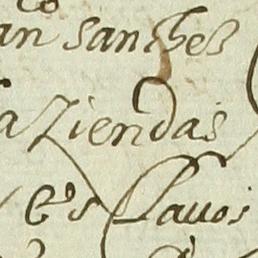 an sanches
aziendas
es Clauos